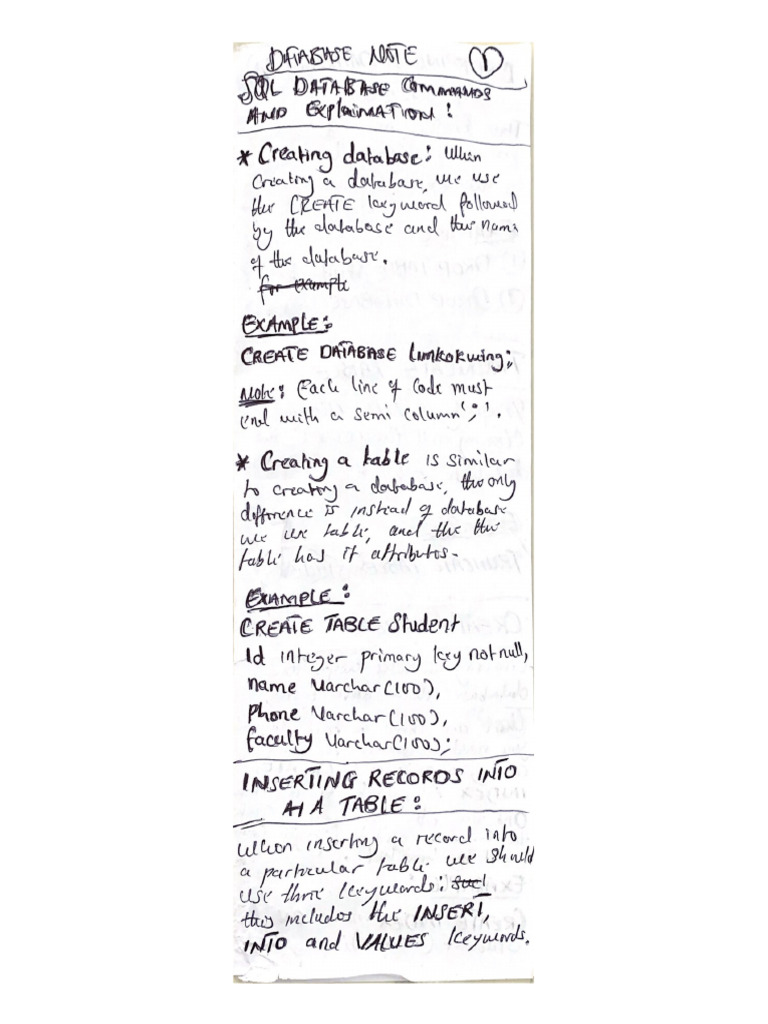 DATABASE NOTE 1
SQL DATABASE COMMANDS
AND ExplaiMATION :
* Creating database : When
Creating a database, we use
the CREATE keyword followed
by the database and the name
of the database.
for example
EXAMPLE :
CREATE DATABASE limkokwing;
Note : Each line of Code must
end with a semi column ';'.
* Creating a table is similar
to creating a database, the only
difference is instead of database
we use table, and the the
table has it attributes.
EXAMPLE :
CREATE TABLE Student
Id integer primary key not null,
name Varchar(100),
Phone Varchar(100),
faculty Varchar(100);
INSERTING RECORDS INTO
A TABLE :
When inserting a record into
a particular table we should
use three keywords :
this includes the INSERT,
INTO and VALUES keywords.